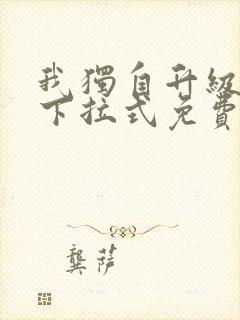 我獨自升級
下拉式免費
龔蓓